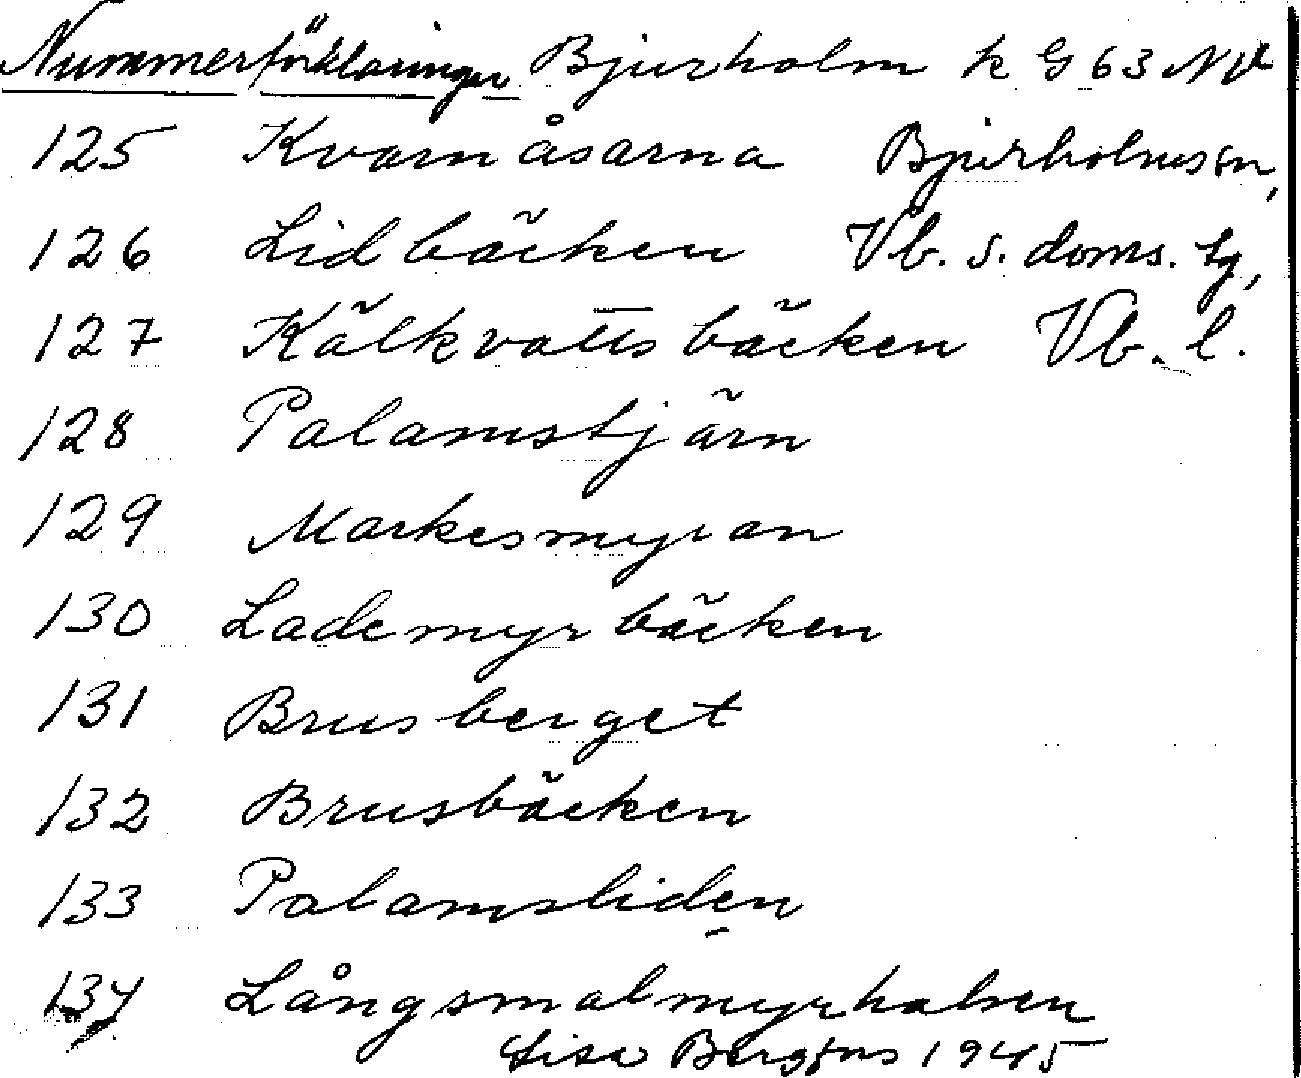 Nummerförklaringar Bjurholm k G 63 NV
125 Kvarnåsarna Bjurholms sn,
126 Lidbäcken Vb. s. doms. tg,
127 Kälkvattsbäcken Vb. l.
128 Palamstjärn
129 Markesmyran
130 Lademyrbäcken
131 Brusberget
132 Brusbäcken
133 Palamsliden
134 Långsmalmyrhalsen
Lisa 1945